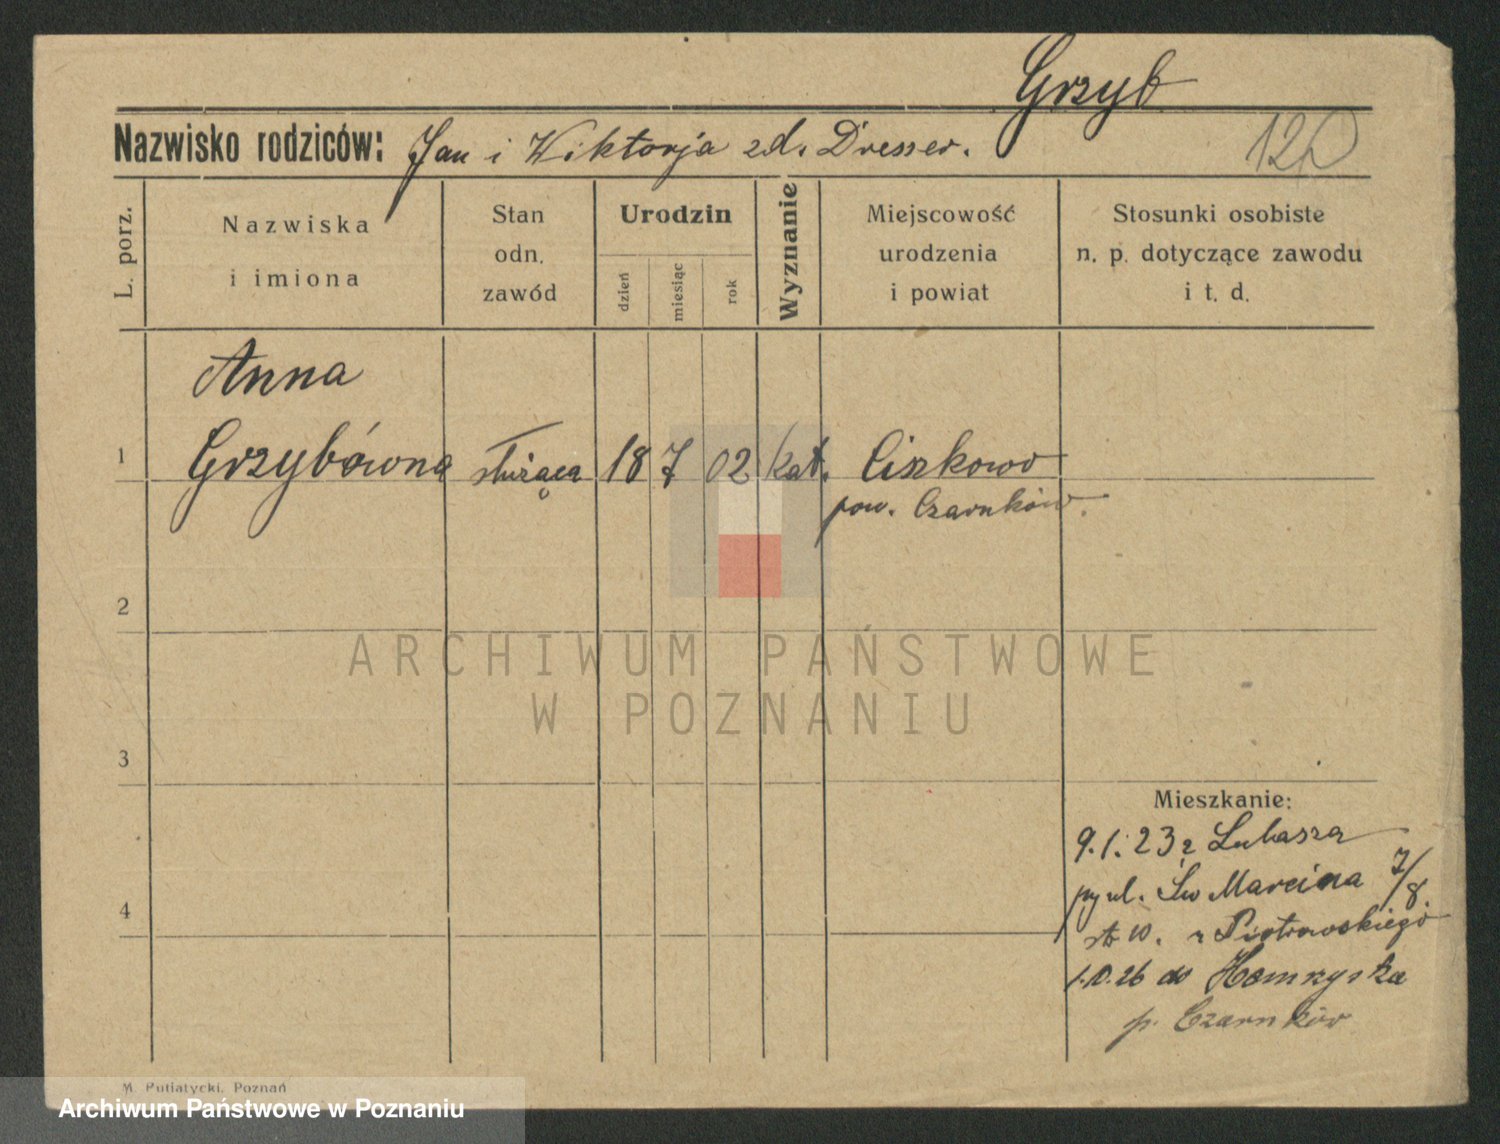 Grzyb
Nazwisko rodziców: Jan i Wiktorja zd. Dresser.
120
L. porz.
Nazwiska
i imiona
Stan
odn.
zawód
Urodzin
dzień
miesiąc
rok
Wyznanie
Miejscowość
urodzenia
i powiat
Stosunki osobiste
n. p. dotyczące zawodu
i t. d.
Anna
1 Grzybówna służąca 18 7 02 kat. Ciszkowo
pow. Czarnków.
2
ARCHIWUM PAŃSTWOWE
W POZNANIU
3
Mieszkanie:
9.1.23 z Lubasza
ul. Św Marcina 7/8.
u Piotrowskiego
1.10.26 do
p. Czarnków
4
M. Putiatycki, Poznań
Archiwum Państwowe w Poznaniu